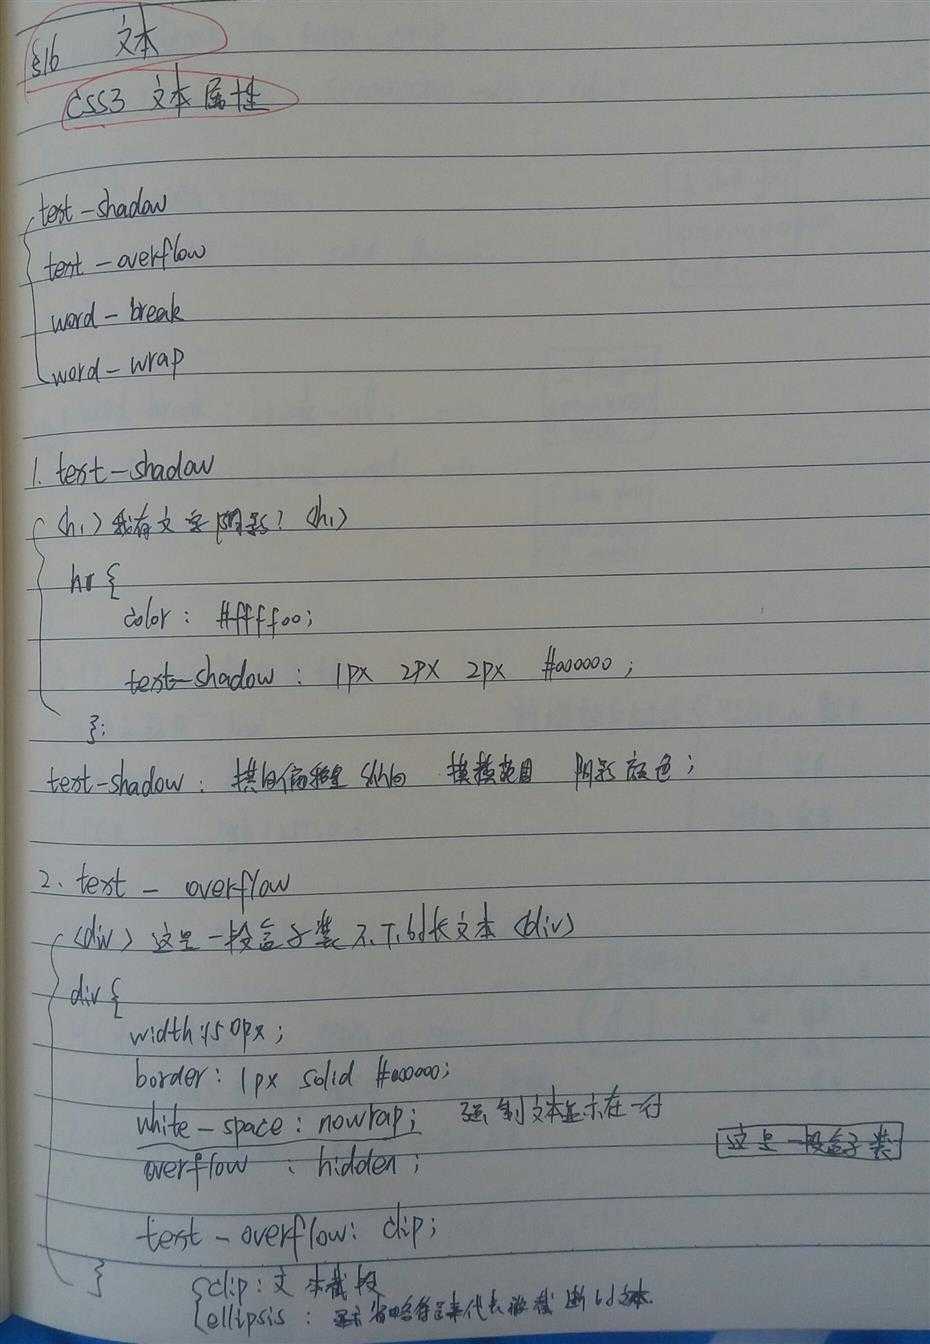 §16 文本
CSS3 文本属性
text-shadow
text-overflow
word-break
word-wrap
1. text-shadow
<h1>我有文字阴影？<h1>
h1{
color: #ffff00;
text-shadow: 1px 2px 2px #000000;
};
text-shadow: 横向偏移量 纵向 模糊范围 阴影颜色;
2. text - overflow
<div>这是一段盒子装不下的长文本<div>
div{
width:150px;
border: 1px solid #000000;
white-space: nowrap; 强制文本显示在一行
这是一段盒子装
overflow : hidden;
text-overflow: clip;
}
clip: 文本裁段
ellipsis: 显示省略符号来代表被裁断的文本